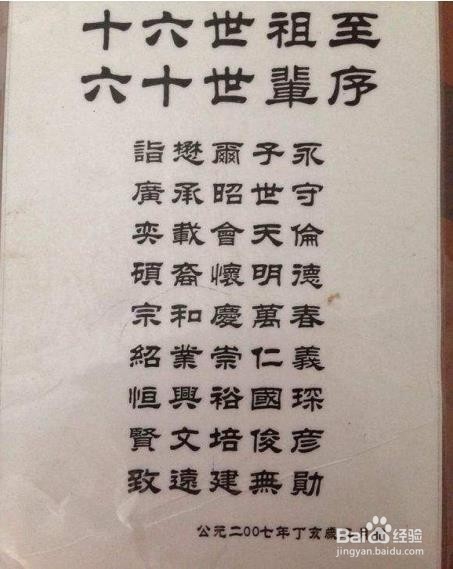 十六世祖至
六十世輩序
詣懋爾子永
廣承昭世守
奕載會天倫
碩裔懷明德
宗和慶萬春
紹業崇仁義
恒興裕國琛
賢文培俊彦
致遠建無勛
公元二00七年丁亥歲
Baidu经验
jingyan.baidu.com